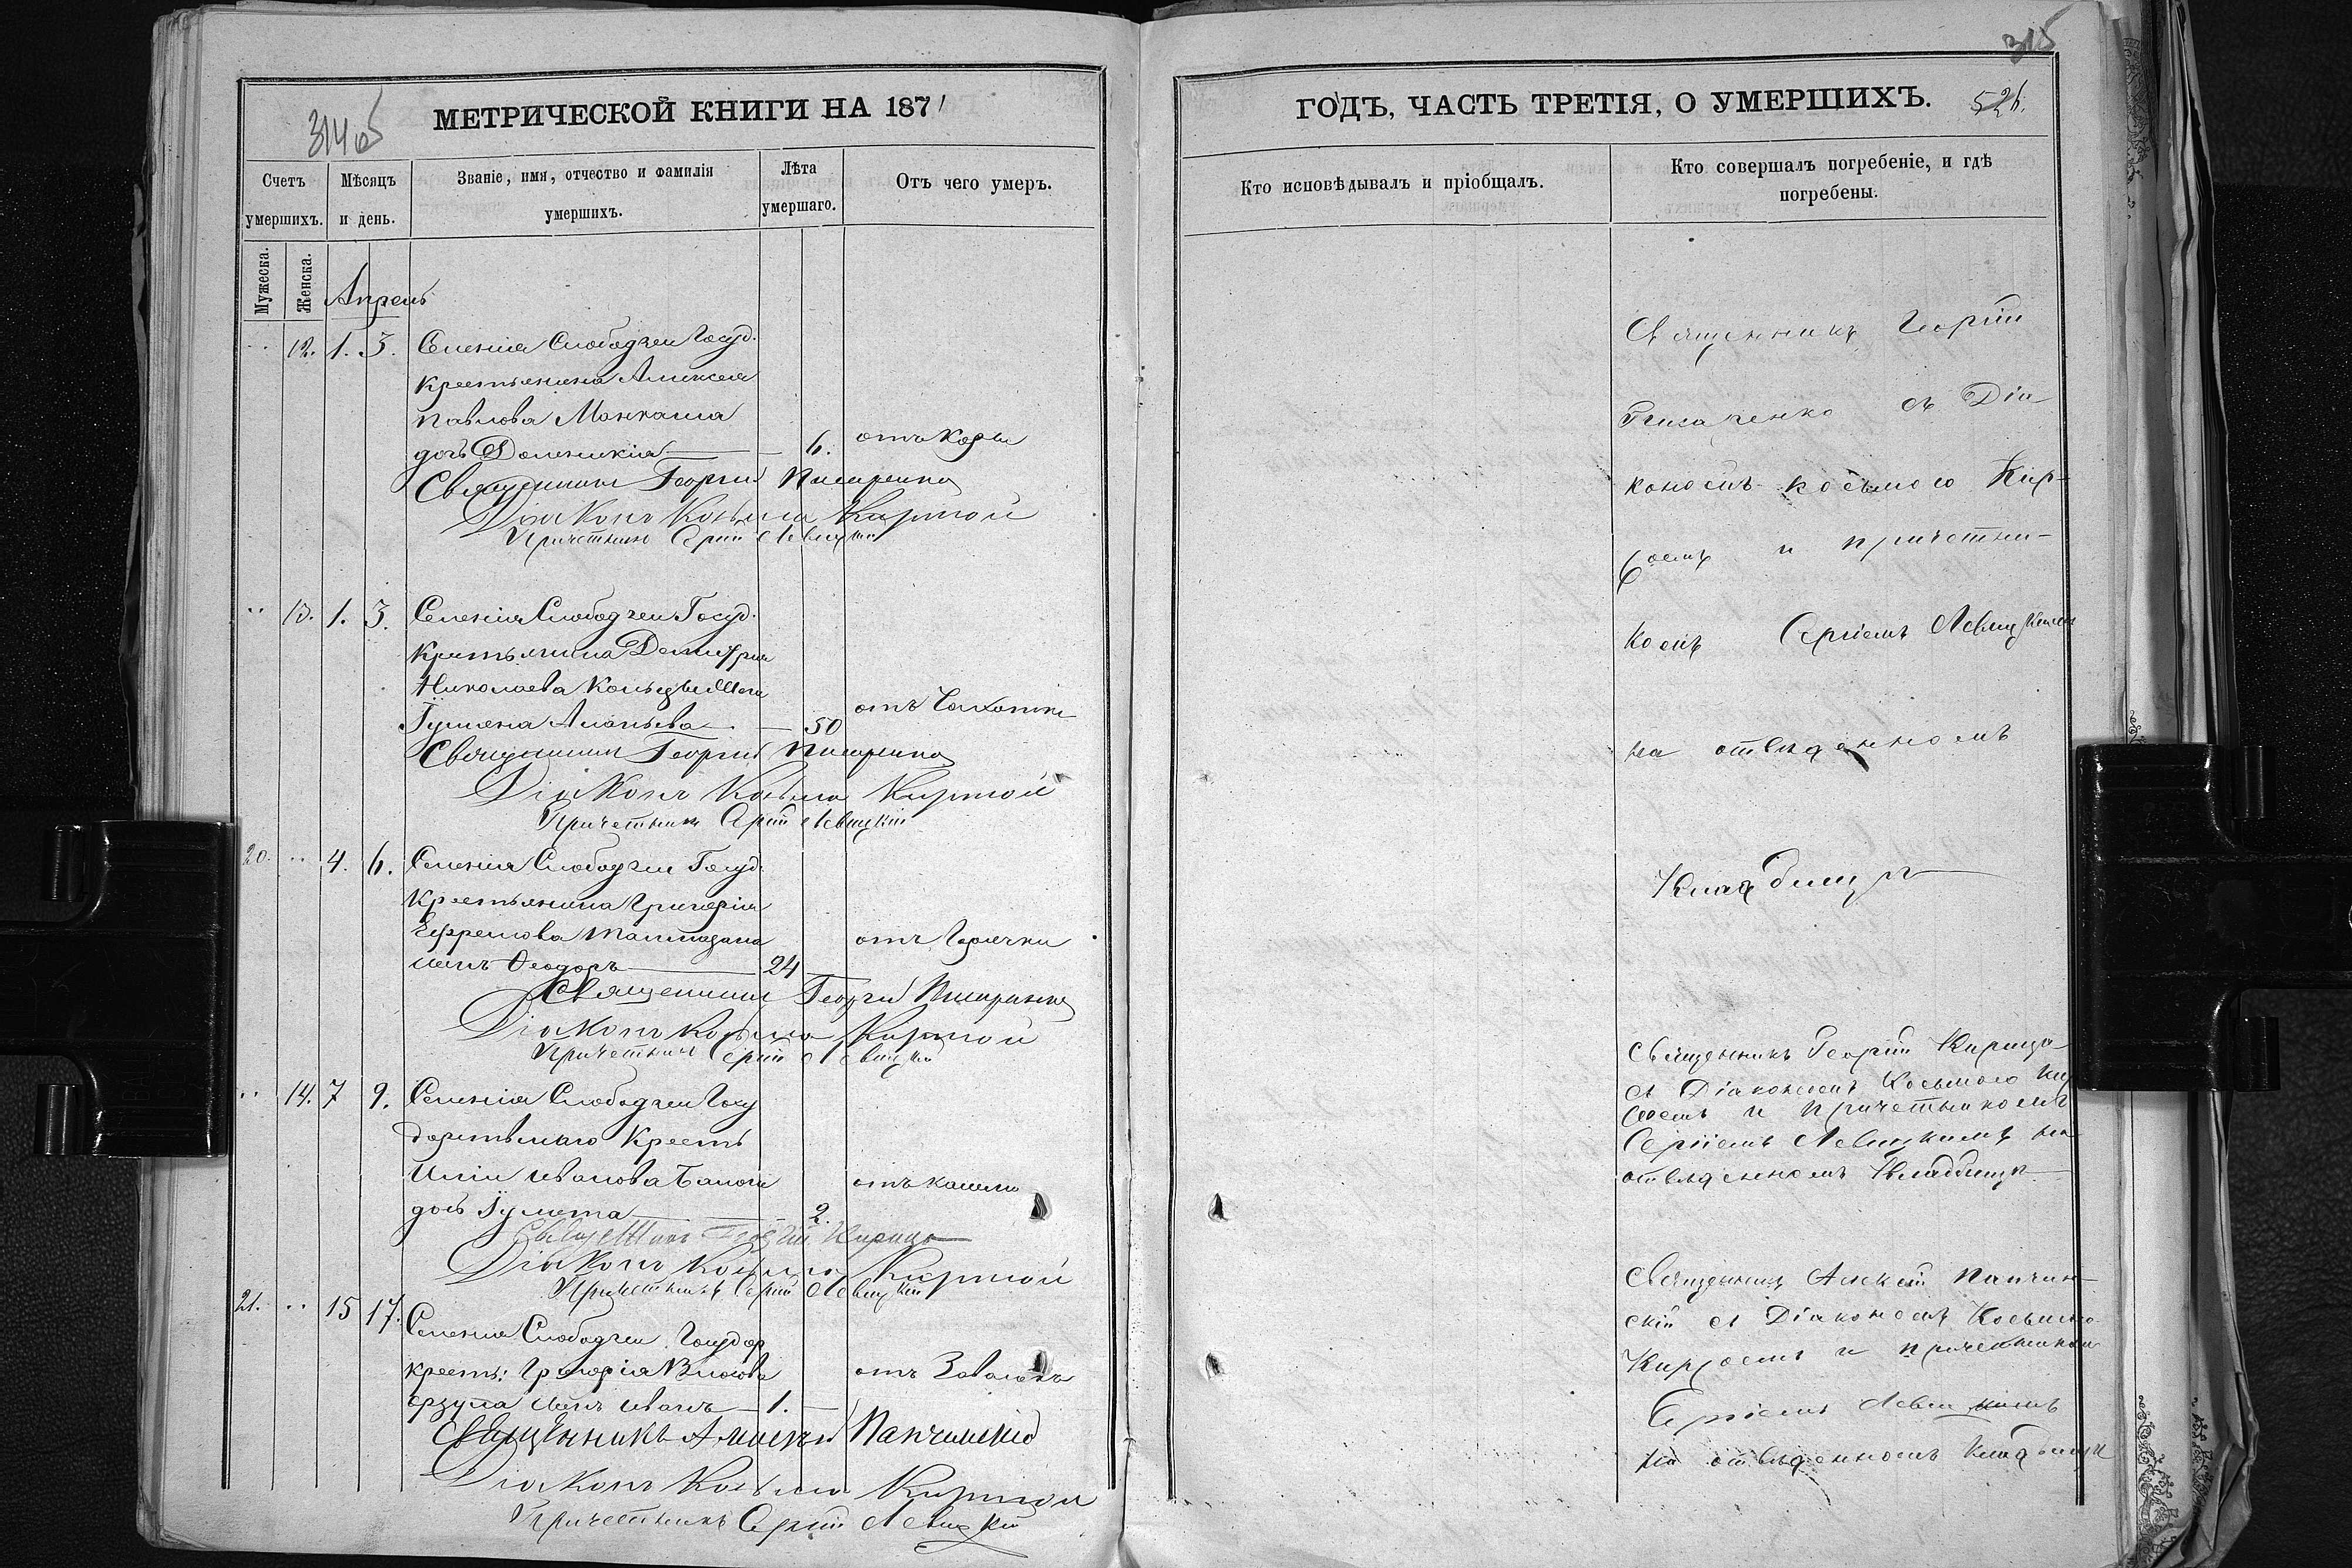 314об
МЕТРИЧЕСКОЙ КНИГИ НА 1871
Счетъ умершихъ.
Мѣсяцъ и день.
Званіе, имя, отчество и фамилія умершихъ.
Лѣта умершаго.
Отъ чего умеръ.
Мужеска.
Женска.
Апрель
12. 1. 3. Селенія Слободзеи Госуд.
крестьянина Алексея
Павлова
дочь 6. отъ Кори
Священник Георгий Писаренко
Діаконъ Косьма Киртой
Причетникъ Сергій Левицкий
13. 1. 3. Селенія Слободзеи Госуд.
Крестьянина Димитрия
Николаева
50 отъ Чахотки
Священник Георгий Писаренко
Діаконъ Косьма Кирой
Причетникъ Сергій Левицкій
20. 4. 6. Селенія Слободзеи Госуд.
Крестьянина Григорія
Ефремова
сынъ Феодоръ 24 отъ Горячки
Священник Георгий Писаренко
Діаконъ Косьма Кирой
Причетникъ Сергій Левицкій
14. 7 9. Селенія Слободзеи Госу
дарственаго Кресть
Иліи Иванова
дочь 2. отъ кашля
Священникъ Георгій Кирица
Діаконъ Косьма Кирой
Причетникъ Сергій Левицкій
21. 15 17. Селенія Слободзеи Государ
кресть: Григорія Власова
сынъ Иванъ 1.
отъ
Священникъ Алексій Папчинскій
Діаконъ Косьма Кирой
Причетникъ Сергій Левицкій
315
ГОДЪ, ЧАСТЬ ТРЕТІЯ, О УМЕРШИХЪ.
526.
Кто исповѣдывалъ и пріобщалъ.
Кто совершалъ погребеніе, и гдѣ погребены.
Священникъ Георгій
Писаренко съ Діа
кономъ Косьмою Кир-
оемъ и причетни-
комъ Сергіемъ Левицкимъ
на отведенномъ
Кладбищѣ
Священникъ Георгій Кирица
съ Діакономъ Косьмою Ки
роемъ и причетникомъ
Сергіемъ Левицкимъ на
отведенномъ Кладбищѣ
Священникъ Алексій Папчин-
скій съ Діакономъ Косьмою
Кироемъ и причетникомъ
Сергіемъ Левицкимъ
на отведенномъ Кладбищѣ